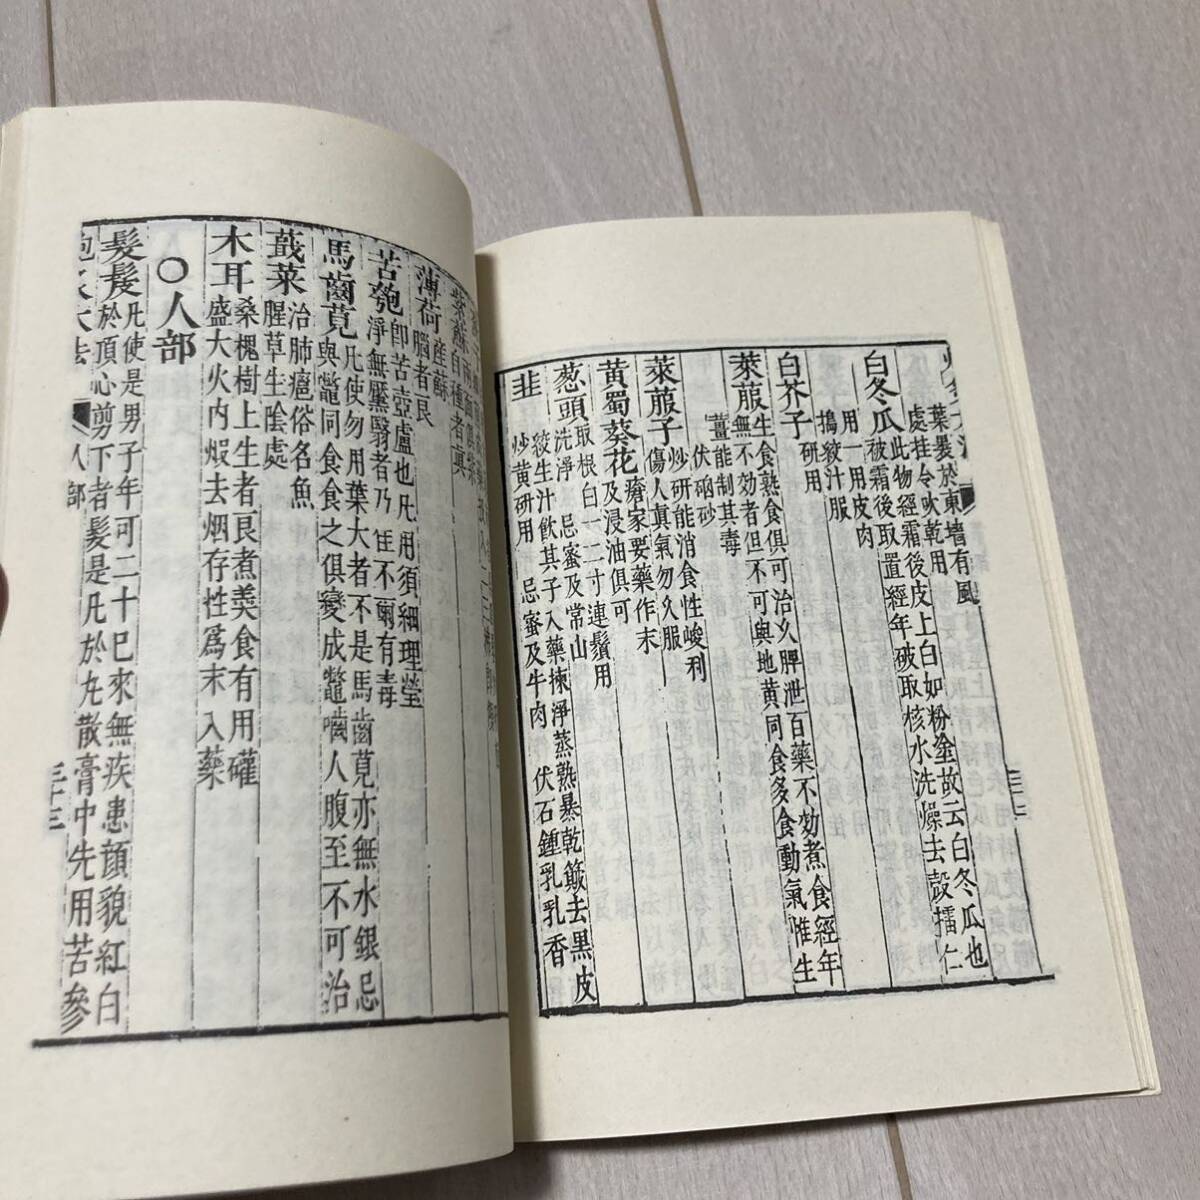 葉晏於東墻有風
處挂令吹乾用
白冬瓜
此物經霜後皮上白如粉塗故云白冬瓜也
被霜後取置經年破取核水洗燥去殼擂仁
用一用皮肉
搗絞汁服
白芥子
研用
萊菔
生食熟食俱可治久脾泄百藥不効煮食經年
無不効者但不可與地黃同食多食動氣惟生
薑能制其毒
伏硇砂
萊菔子
炒研能消食性峻利
傷人眞氣勿久服
黄蜀葵花
瘡家要藥作末
及浸油俱可
葱頭
取根白一二寸連鬚用
洗淨 忌蜜及常山
韭
絞生汁飲其子入藥揀淨蒸熟暴乾簸去黑皮
炒黄研用 忌蜜及牛肉 伏石鍾乳乳香
紫蘇
自種者眞
薄荷
産蘇
腦者良
苦匏
卽苦壺盧也凡用須細理瑩
淨無黡翳者乃佳不爾有毒
馬齒莧
凡使勿用葉大者不是馬齒莧亦無水銀忌
與鼈同食食之俱變成鼈嚙人腹至不可治
蕺菜
治肺癰俗名魚
腥草生陰處
木耳
桑槐樹上生者良煮羮食有用礶
盛大火内煅去烟存性爲末入藥
○人部
髮髲
凡使是男子年可二十已來無疾患顔貌紅白
於頂心剪下者髮是凡於丸散膏中先用苦參
人部
三十三